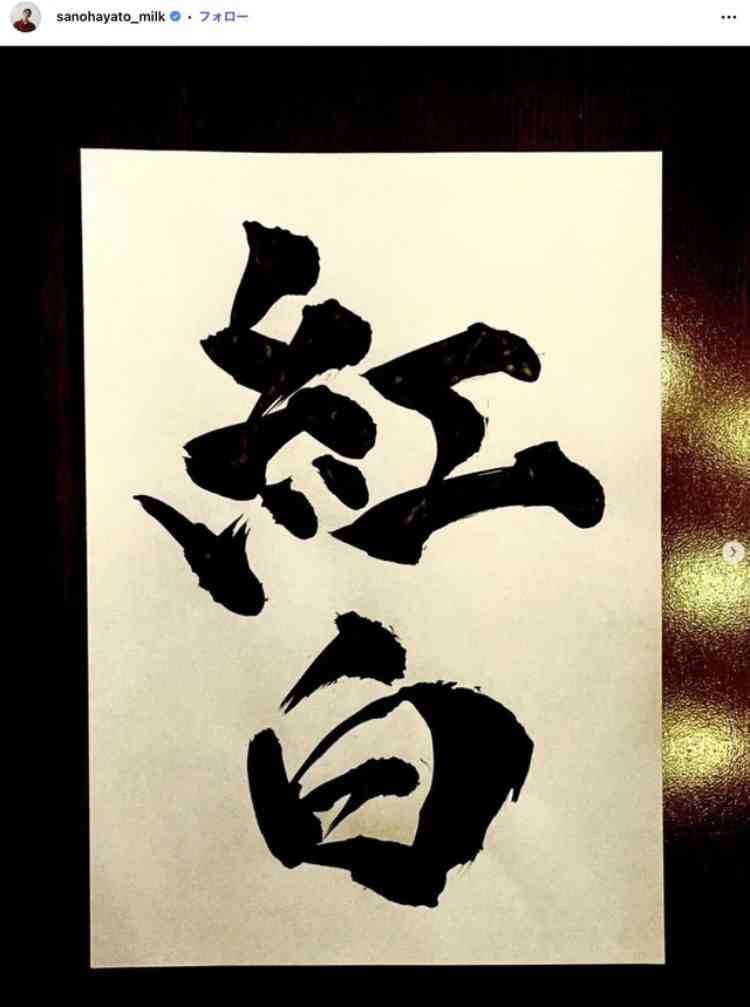 sanohayato_milk • フォロー
紅
白